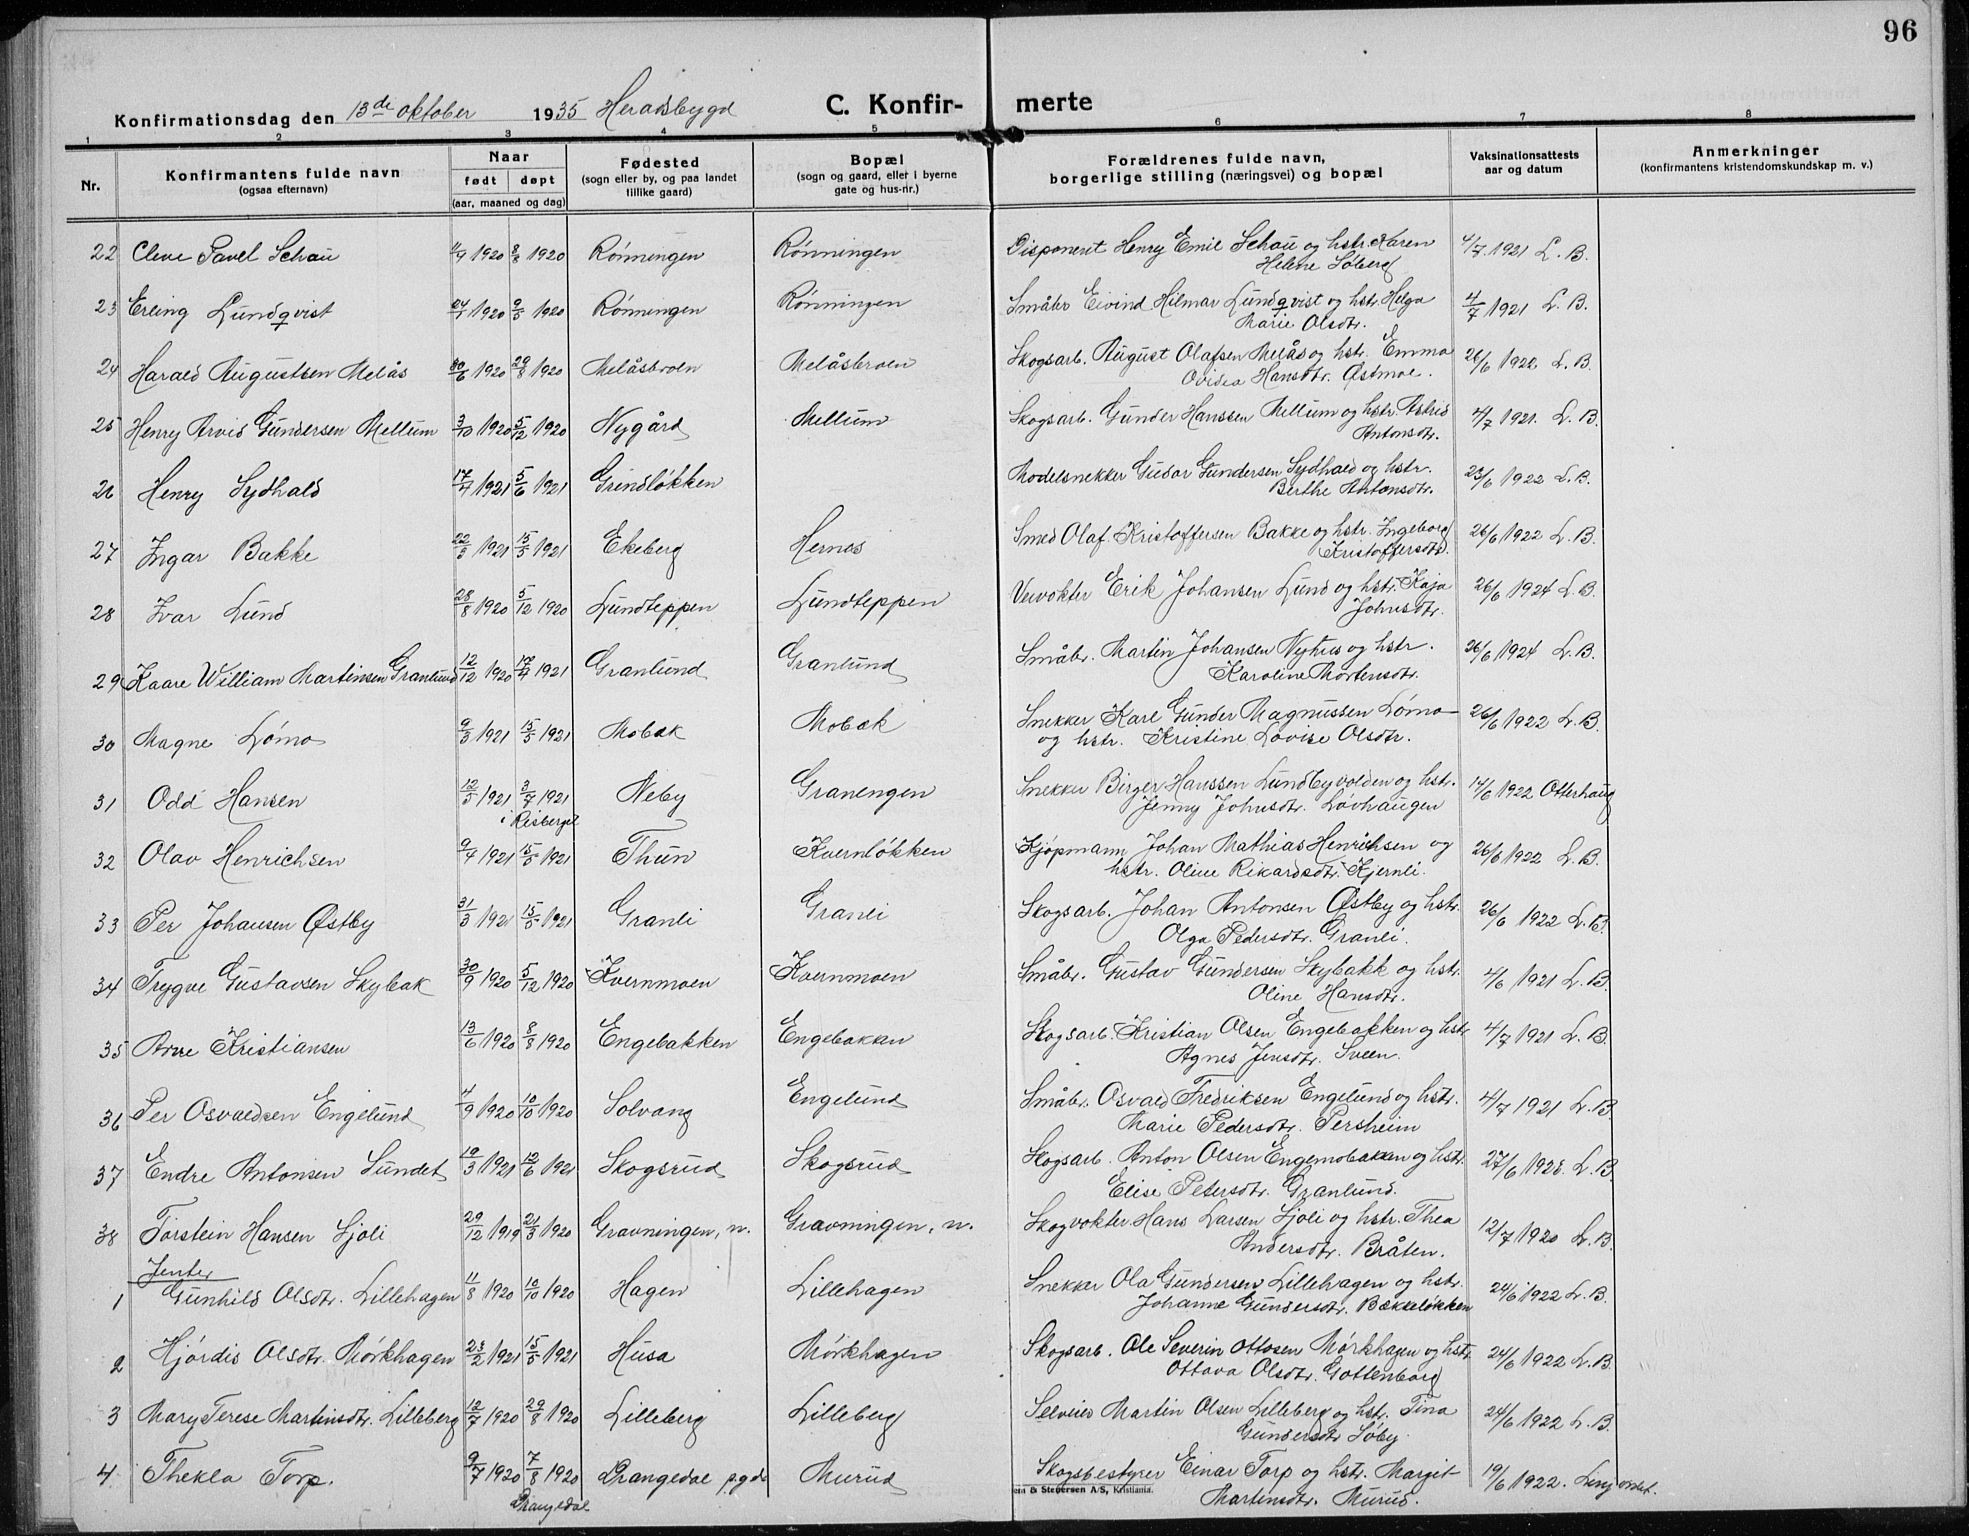 96
Konfirmationsdag den 13de oktober 1935 Heradsbygd C. Konfir- merte
1 2 3 4 5 6 7 8
Nr. Konfirmantens fulde navn (ogsaa efternavn) Naar født døpt (aar, maaned og dag) Fødested (sogn eller by, og paa landet tillike gaard) Bopæl (sogn og gaard, eller i byerne gate og hus-nr.) Forældrenes fulde navn, borgerlige stilling (næringsvei) og bopæl Vaksinationsattests aar og datum Anmerkninger (konfirmantens kristendomskundskap m. v.)
22 Cleve Pavel Schau 1920 8/8 1920 Rönningen Rönningen Disponent Henry Emil Schau og hstr. Karen 4/7 1921 L. B.
Helene Söberg
23 Erling Lundqvist 1920 1920 Rönningen Rönningen Småbr. Eivind Hilmar Lundqvist og hstr. Helga 4/7 1921 L. B.
Marie Olsdtr.
24 Harald Augustsen Melås 30/6 1920 29/8 1920 Melåsbroen Melåsbroen Skogsarb. August Olafsen Melås og hstr. Emma 26/6 1922 L. B.
Ovidia Hansdtr. Østmoe.
25 Henry Arvid Gundersen Mellum 3/10 1920 5/12 1920 Nygård Mellum Skogsarb. Gunder Hanssen Mellum og hstr. Astrid 4/7 1921. L. B.
Antonsdtr.
26 Henry Sydhald 17/4 1921 5/6 1921 Grindlökken Modelsnekker Gudar Gundersen Sydhald og hstr. 23/6 1922 L. B.
Berthe Antonsdtr.
27 Ingar Bakke 22/3 1921 15/5 1921 Ekeberg Hernes Smed Olaf Kristoffersen Bakke og hstr. Ingeborg 26/6 1922 L. B.
Kristoffersdtr.
28 Ivar Lund 28/8 1920 5/12 1920 Lundteppen Lundteppen Veivokter Erik Johansen Lund og hstr. Kaja 26/6 1924 L. B.
Johnsdtr.
29 Kaare William Martinsen Granlund 12/12 1920 17/4 1921 Granlund Granlund Småbr. Martin Johansen Nyhus og hstr. 26/6 1924 L. B.
Karoline Mortensdtr.
30 Magne Lömo 9/3 1921 15/5 1921 Mobæk Mobæk Snekker Karl Gunder Magnussen Lömo 26/6 1922 L. B.
og hstr. Kristine Lovise Olsdtr.
31 Odd Hansen 12/5 1921 3/7 1921 Neby Granengen Snekker Birger Hanssen Lundbyvolden og hstr. 14/6 1922 Otterhaug
i Risberget Jenny Johnsdtr. Lövhaugen
32 Olav Henrichsen 9/4 1921 15/5 1921 Thun Kvernlökken Kjøpmann Johan Mathias Henrichsen og 26/6 1922 L. B.
hstr. Oline Rikardsdtr. Kjernli.
33 Per Johansen Østby 31/3 1921 15/5 1921 Granli Granli Skogsarb. Johan Antonsen Østby og hstr. 26/6 1922 L. B.
Olga Pedersdtr. Granli.
34 Trygve Gustavsen Skybak 30/9 1920 5/12 1920 Kvernmoen Kvernmoen Småbr. Gustav Gundersen Skybakk og hstr. 4/6 1921 L. B.
Oline Hansdtr.
35 Arne Kristiansen 13/6 1920 8/8 1920 Engebakken Engebakken Skogsarb. Kristian Olsen Engebakken og hstr 4/7 1921 L. B.
Agnes Jensdtr. Sveen.
36 Per Osvaldsen Engelund 4/9 1920 10/10 1920 Solvang Engelund Småbr. Osvald Fredriksen Engelund og hstr. 4/7 1921 L. B.
Marie Pedersdtr. Persheim
37 Endre Antonsen Sundet 19/3 1921 12/6 1921 Skogsrud Skogsrud Skogsarb. Anton Olsen Engemobakken og hstr. 27/6 L. B.
Elise Petersdtr. Granlund.
38 Torstein Hansen Sjöli 29/12 1919 21/3 1920 Gravningen, n. Gravningen, n. Skogvokter Hans Larsen Sjöli og hstr. Thea 12/7 1920 L. B.
Andersdtr. Bråten.
Jenter
1 Gunhild Olsdtr. Lillehagen 11/8 1920 10/10 1920 Hagen Lillehagen Snekker Ola Gundersen Lillehagen og hstr. 24/6 1922 L. B.
Johanne Gundersdtr. Bækkelökken
2 Hjördis Olsdtr. Mörkhagen 23/2 1921 15/5 1921 Husa Mörkhagen Skogsarb. Ole Severin Ottosen Mörkhagen og hstr. 24/6 1922 L. B.
Ottava Olsdtr. Gottenborg
3 Mary Terese Martinsdtr. Lilleberg 12/7 1920 29/8 1920 Lilleberg Lilleberg Selveier Martin Olsen Lilleberg og hstr. Tina 24/6 1922 L. B.
Gundersdtr Söby.
4 Thekla Torp. 9/7 1920 7/8 1920 Drangedal p.gd. Murud Skogsbestyrer Einar Torp og hstr. Margit 19/6 1922.
Drangedal & Stenersen A/S, Kristiania. Martinsdtr. Murud.